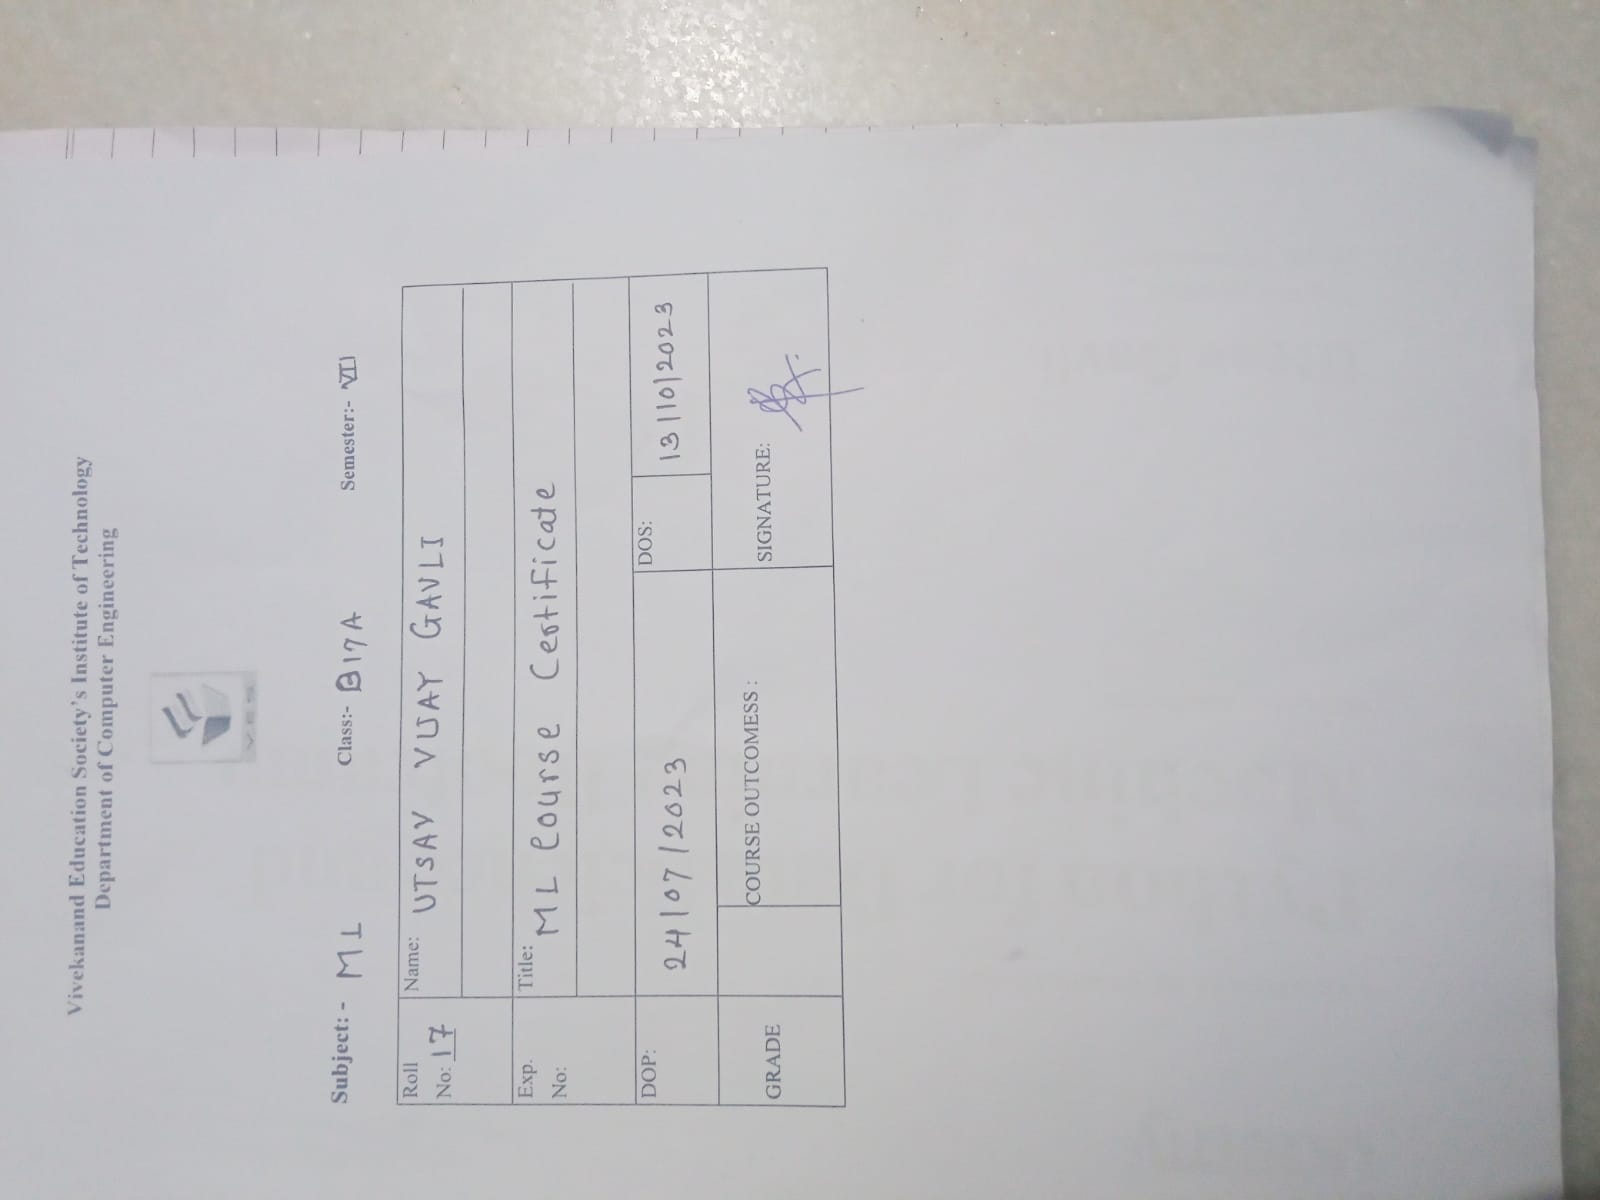 Vivekanand Education Society's Institute of Technology
Department of Computer Engineering
V.E.S.
Subject: - ML Class:- B17A Semester:- VII
Roll No: 17
Name: UTSAV VIJAY GAVLI
Exp. No:
Title: ML Course Certificate
DOP: 24/07/2023 DOS: 13/10/2023
GRADE COURSE OUTCOMESS : SIGNATURE: